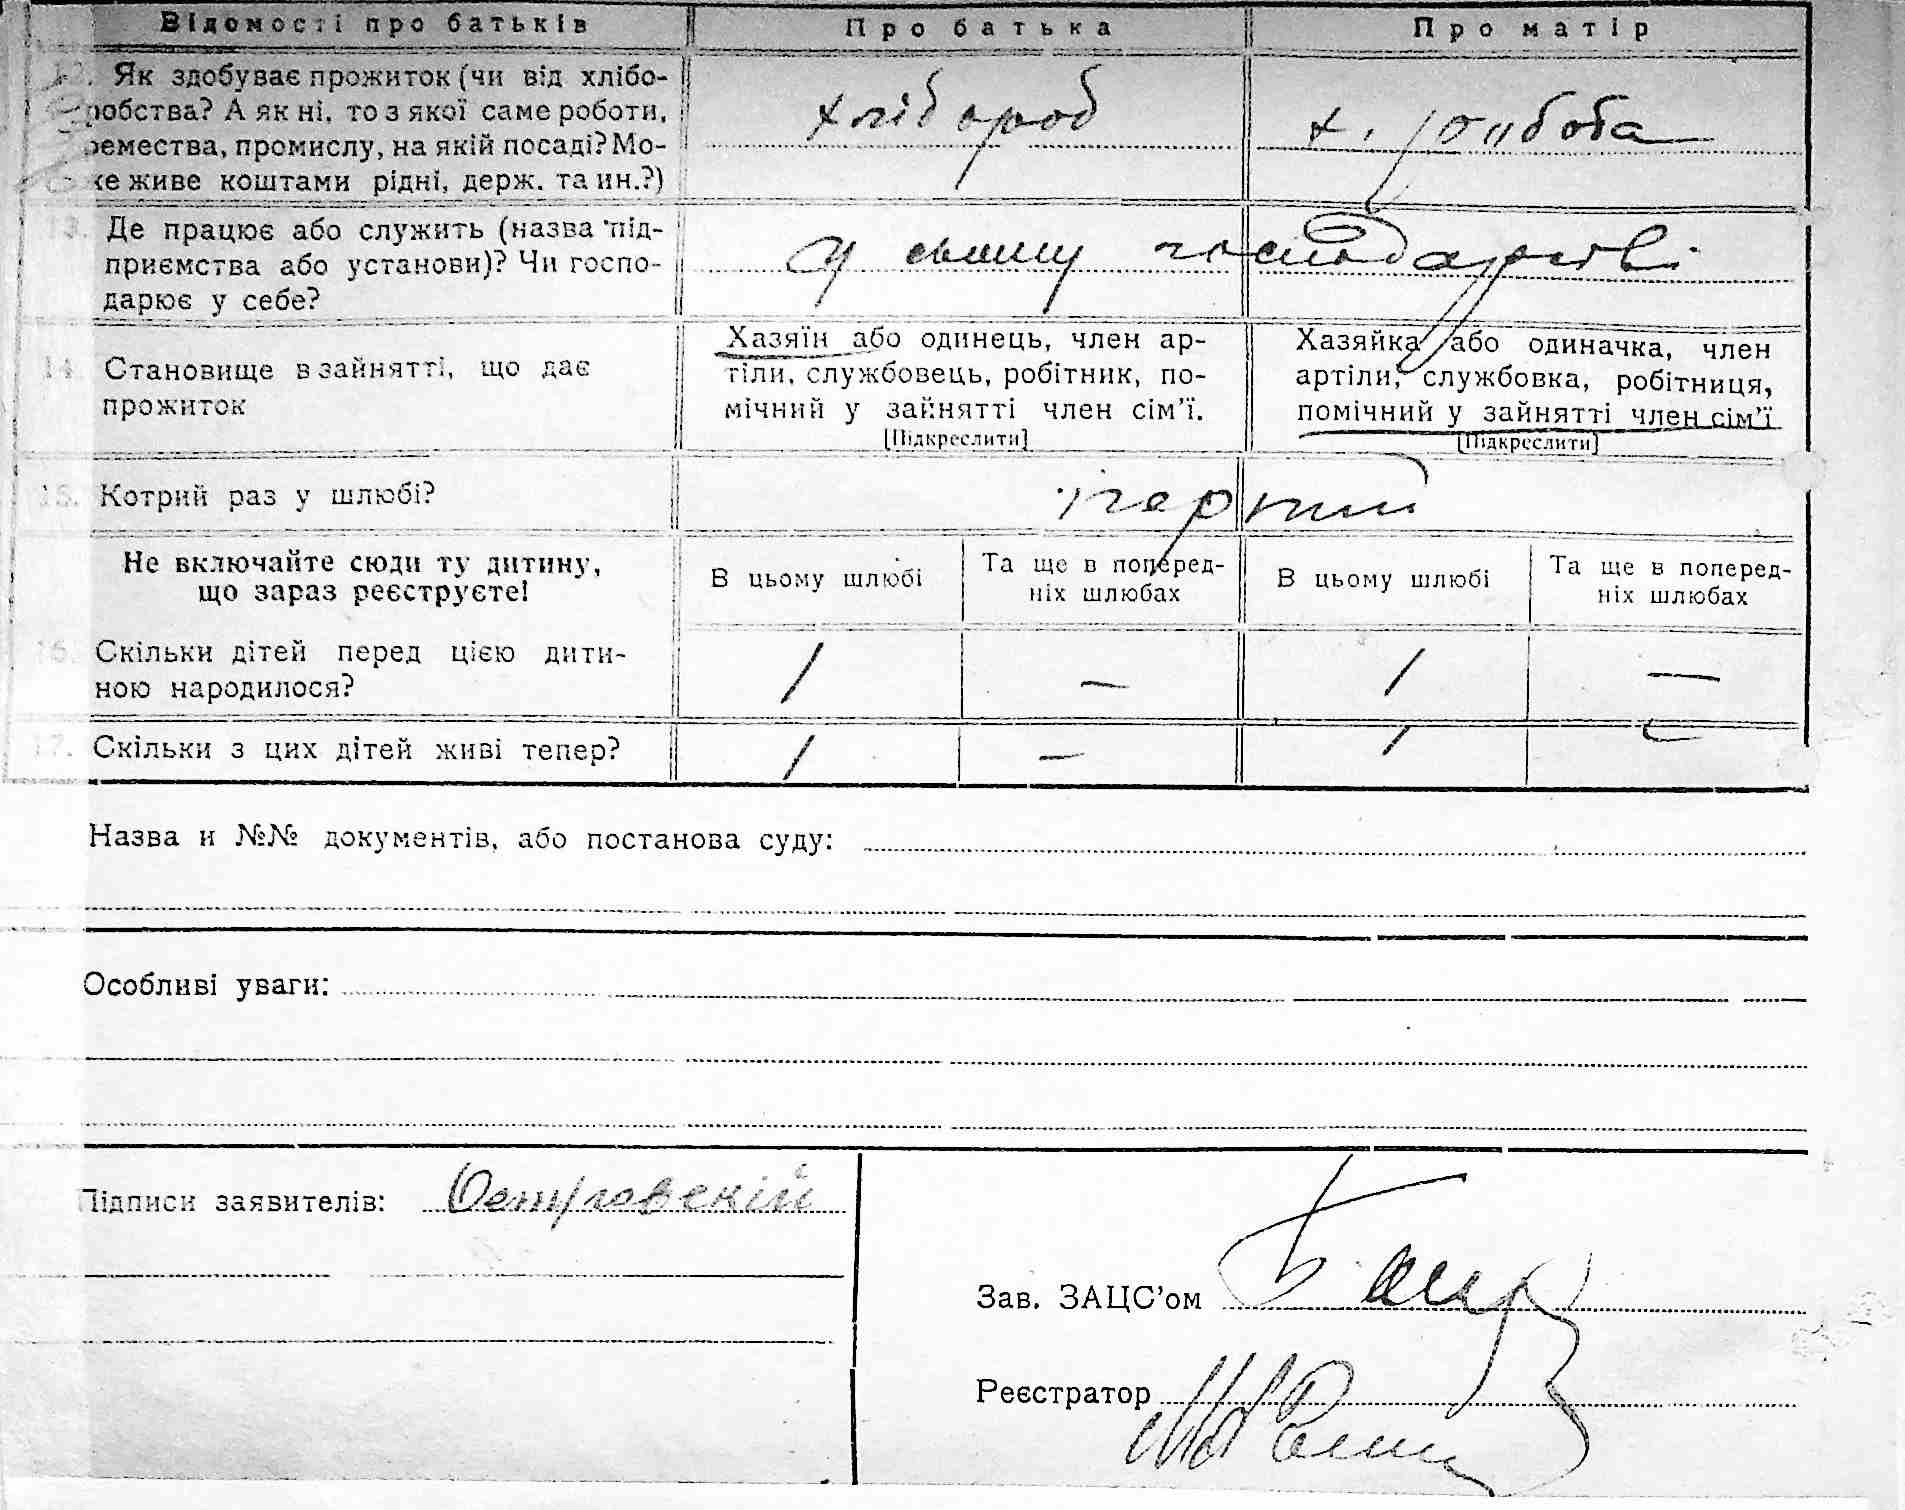 Відомості про батьків
Про батька
Про матір
12. Як здобуває прожиток (чи від хлібо-
робства? А як ні, то з якої саме роботи,
ремества, промислу, на якій посаді? Мо-
же живе коштами рідні, держ. та ин.?)
хлібороб
х.
13. Де працює або служить (назва під-
приємства або установи)? Чи госпо-
дарює у себе?
у своиму господарстві
14. Становище в зайнятті, що дає
прожиток
Хазяїн або одинець, член ар-
тіли, службовець, робітник, по-
мічний у зайнятті член сім'ї.
[Підкреслити]
Хазяйка або одиначка, член
артіли, службовка, робітниця,
помічний у зайнятті член сім'ї
[Підкреслити]
15. Котрий раз у шлюбі?
перший
Не включайте сюди ту дитину,
що зараз реєструєте!
В цьому шлюбі
Та ще в поперед-
ніх шлюбах
В цьому шлюбі
Та ще в поперед-
ніх шлюбах
16. Скільки дітей перед цією дити-
ною народилося?
1 — 1 —
17. Скільки з цих дітей живі тепер?
1 — 1 —
Назва и №№ документів, або постанова суду:
Особливі уваги:
Підписи заявителів: Островскій
Зав. ЗАЦС'ом
Реєстратор